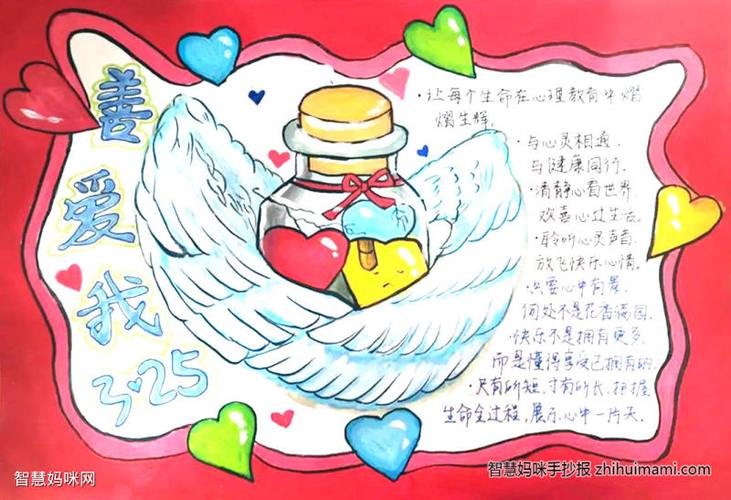 善
爱
我
3.25
·让每个生命在心理教育中熠
熠生辉.
·与心灵相通.
与健康同行.
·清静心看世界
欢喜心过生活.
·聆听心灵声音.
放飞快乐心情.
·只要心中有景.
何处不是花香满园.
·快乐不是拥有更多.
而是懂得享受已拥有的.
·尺有所短,寸有所长.把握
生命全过程,展示心中一片天.
智慧妈咪网
智慧妈咪手抄报 zhihuimami.com